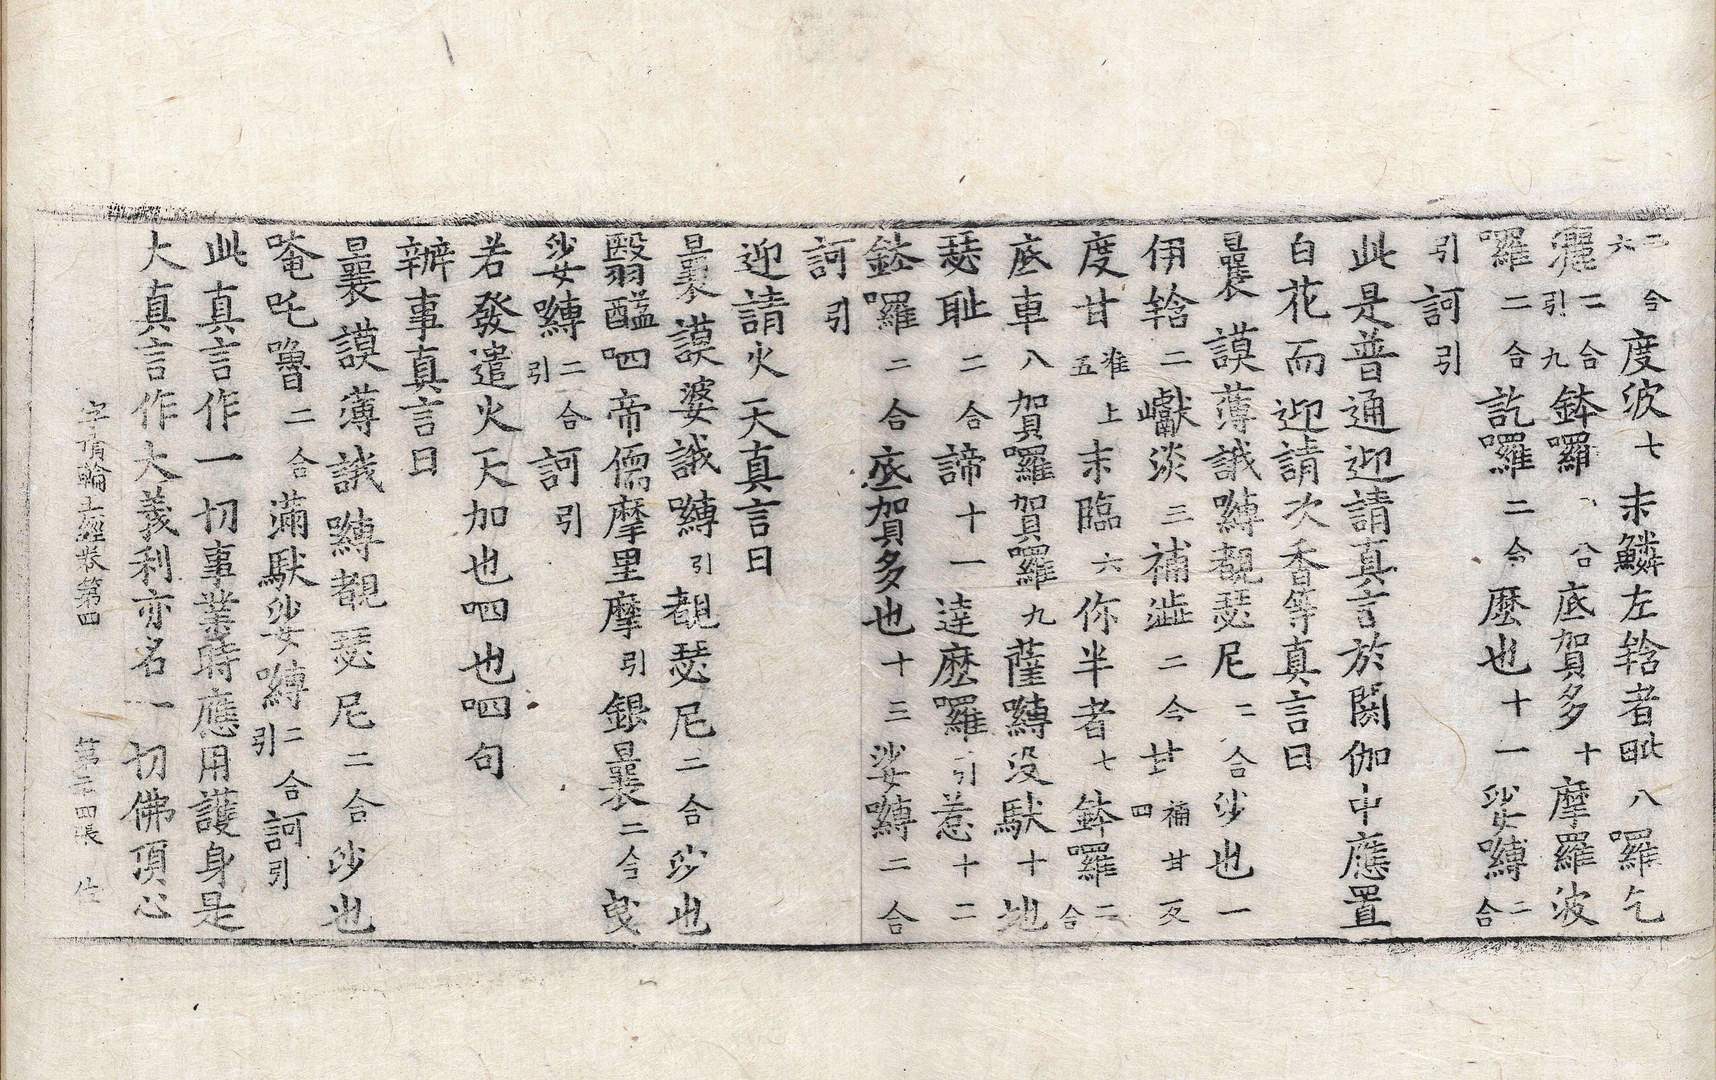 二合六度波七末鱗左辖者毗八囉乞
灑二合引九鉢囉二合底賀多十摩羅波
囉二合訖囉二合麽也十一娑嚩二合
引訶引
此是普通迎請真言於閼伽中應置
白花而迎請次香等真言曰
曩謨薄誐嚩覩瑟尼二合沙也一
伊辖二巘淡三補澁二合甘補甘反四
度甘准上五末臨六你半者七鉢囉二合
底車八賀囉賀囉九薩嚩没馱十地
瑟耻二合諦十一達麽囉引惹十二
鉢囉二合底賀多也十三娑嚩二合
訶引
迎請火天真言曰
曩謨婆誐嚩引覩瑟尼二合沙也
翳醯呬帝儒摩里摩引銀曩二合曵
娑嚩二合引訶引
若發遣火天加也呬也呬句
辦事真言曰
曩謨薄誐嚩覩瑟尼二合沙也
唵吒嚕二合滿馱娑嚩二合引訶引
此真言作一切事業時應用護身是
大真言作大義利亦名一切佛頂心
字頂輪王經卷第四 第二十四張 仕